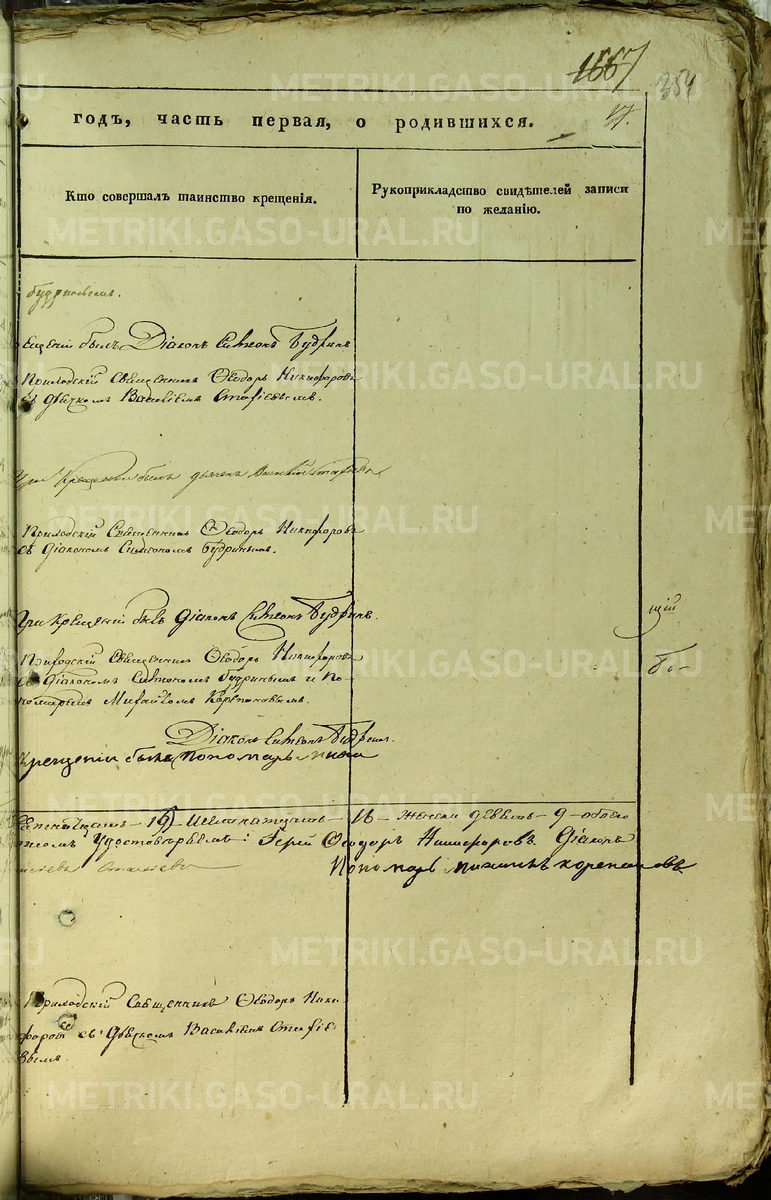 1667
354
годъ, часть первая, о родившихся.
17.
Кто совершалъ таинство крещенія.
Рукоприкладство свидѣтелей записи
по желанію.
Будринымъ.
былъ Діаконъ Симеонъ Будринъ
Приходскій Священникъ Ѳеодоръ Никифоровъ
съ дьячкомъ Василіемъ
При Крещеніи былъ дьячекъ Василій
Приходскій Священникъ Ѳеодоръ Никифоровъ
съ Діакономъ Симеономъ Будринымъ.
При Крещеніи былъ Діаконъ Симеонъ Будринъ.
щій
Приходскій Священникъ Ѳеодоръ Никифоровъ
съ Діакономъ Симеономъ Будринымъ и По-
номаремъ Михайломъ Корепановымъ.
Діаконъ Симеонъ Будринъ.
Крещеніи былъ Пономарь
16 женска девять 9 обоего
Удостовѣряемъ: Іерей Ѳеодоръ Никифоровъ Діаконъ
Пономарь Михаилъ Корепановъ
Приходскій Священникъ Ѳеодоръ Ники
форовъ съ Дьячкомъ Василіемъ
METRIKI.GASO-URAL.RU